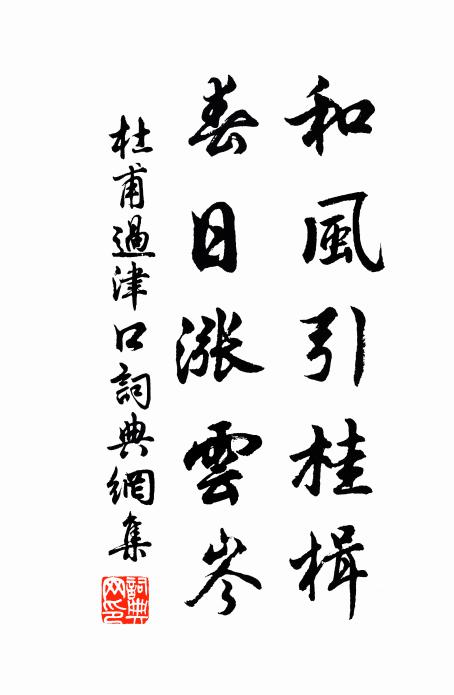 和風引桂楫
春日漲雲岑
杜甫過津口詞典網集
詞典網印